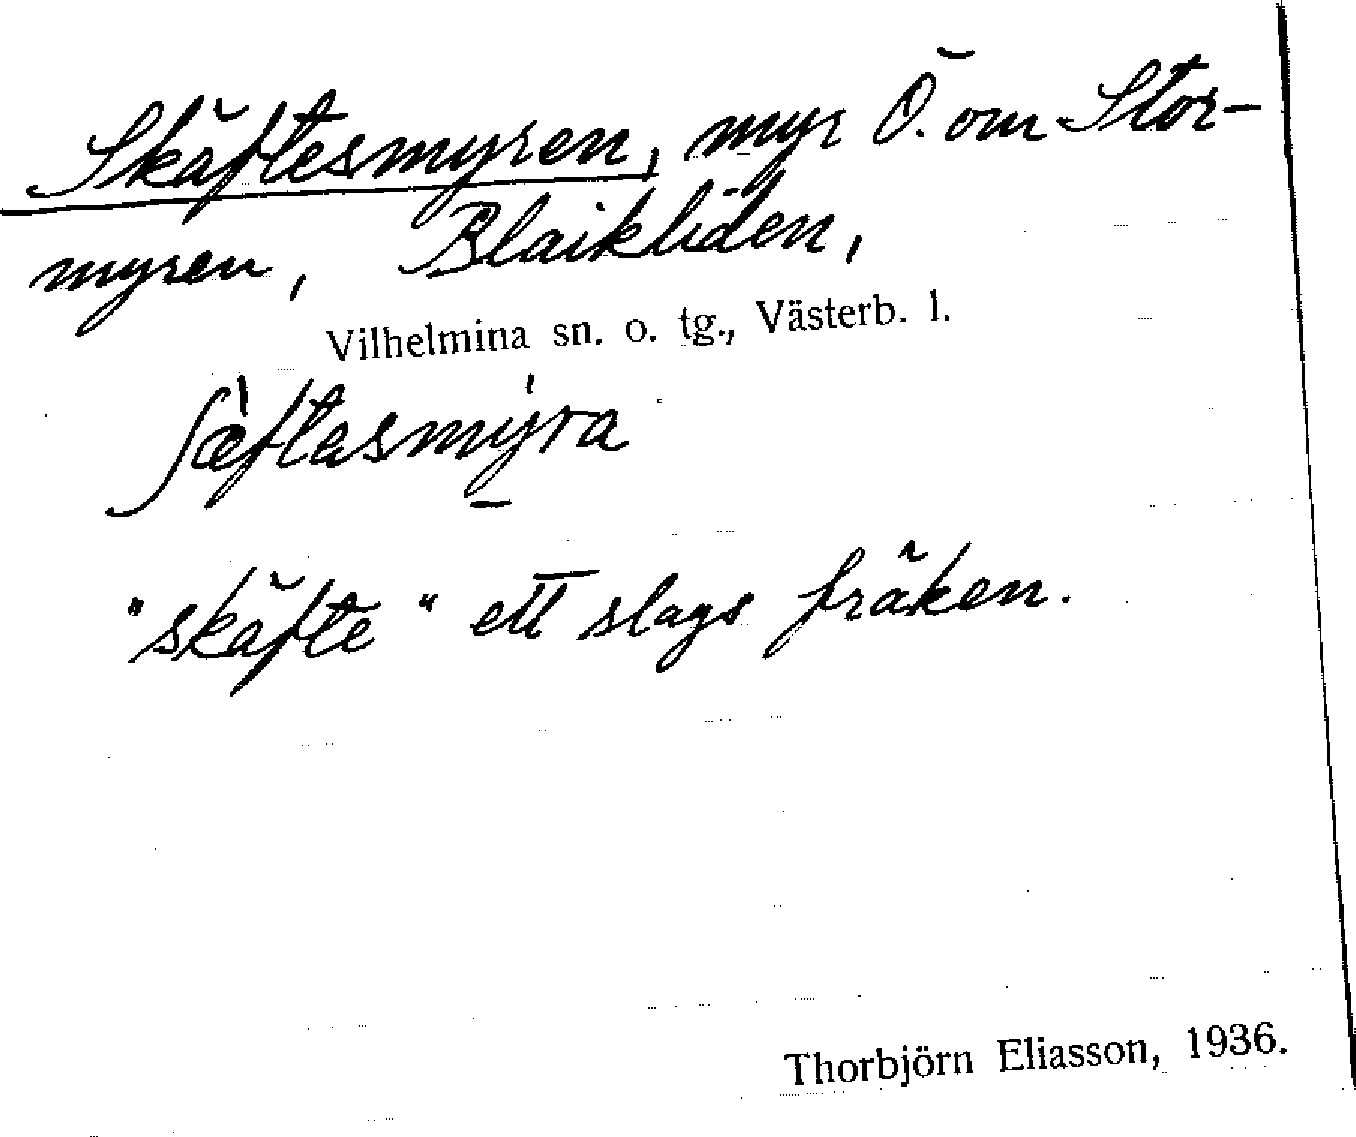 Skäftesmyren, myr Ö. om Stor-
myren, Blaikliden,
Vilhelmina sn. o. tg., Västerb. l.
ʃæ̀ftasmýra
"skäfte" ett slags fräken.
Thorbjörn Eliasson, 1936.